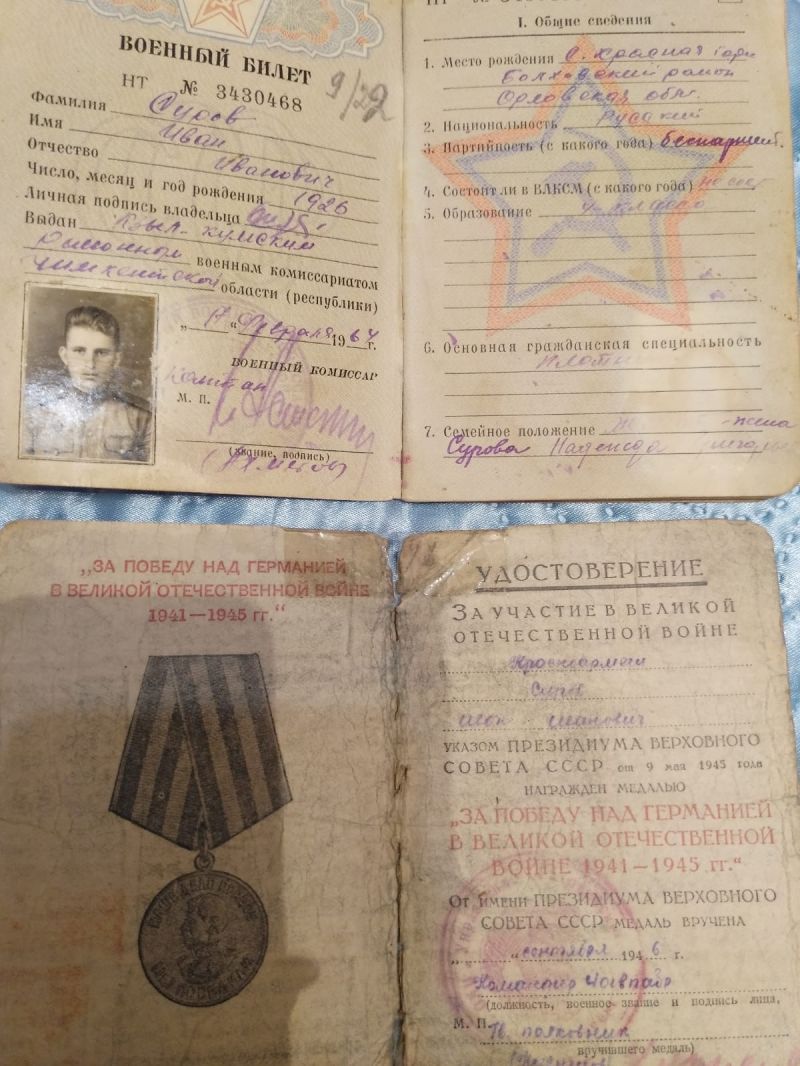 ВОЕННЫЙ БИЛЕТ
НТ № 3430468
9/22
Фамилия Суров
Имя Иван
Отчество Иванович
Число, месяц и год рождения 1926
Личная подпись владельца
Выдан Кзыл-кумский
районном военным комиссариатом
Чимкентской области (республики)
„ 17 “ февраля 1964 г.
ВОЕННЫЙ КОМИССАР
капитан
М. П.
(звание, подпись)
НТ №
I. Общие сведения
1. Место рождения с. Красная гора
Болховский район
Орловская обл.
2. Национальность Русский
3. Партийность (с какого года) беспартийн.
4. Состоит ли в ВЛКСМ (с какого года) не сост
5. Образование 4 класса
6. Основная гражданская специальность
7. Семейное положение жена
Сурова Надежда
„ЗА ПОБЕДУ НАД ГЕРМАНИЕЙ
В ВЕЛИКОЙ ОТЕЧЕСТВЕННОЙ ВОЙНЕ
1941—1945 гг.“
НАШЕ ДЕЛО ПРАВОЕ
МЫ ПОБЕДИЛИ
УДОСТОВЕРЕНИЕ
ЗА УЧАСТИЕ В ВЕЛИКОЙ
ОТЕЧЕСТВЕННОЙ ВОЙНЕ
Красноармеец
Суров
Иван Иванович
УКАЗОМ ПРЕЗИДИУМА ВЕРХОВНОГО
СОВЕТА СССР от 9 мая 1945 года
НАГРАЖДЕН МЕДАЛЬЮ
„ЗА ПОБЕДУ НАД ГЕРМАНИЕЙ
В ВЕЛИКОЙ ОТЕЧЕСТВЕННОЙ
ВОЙНЕ 1941—1945 гг.“
От имени ПРЕЗИДИУМА ВЕРХОВНОГО
СОВЕТА СССР МЕДАЛЬ ВРУЧЕНА
„ “ сентября 1946 г.
Командир
(должность, военное звание и подпись лица,
М. П. полковник
вручившего медаль)